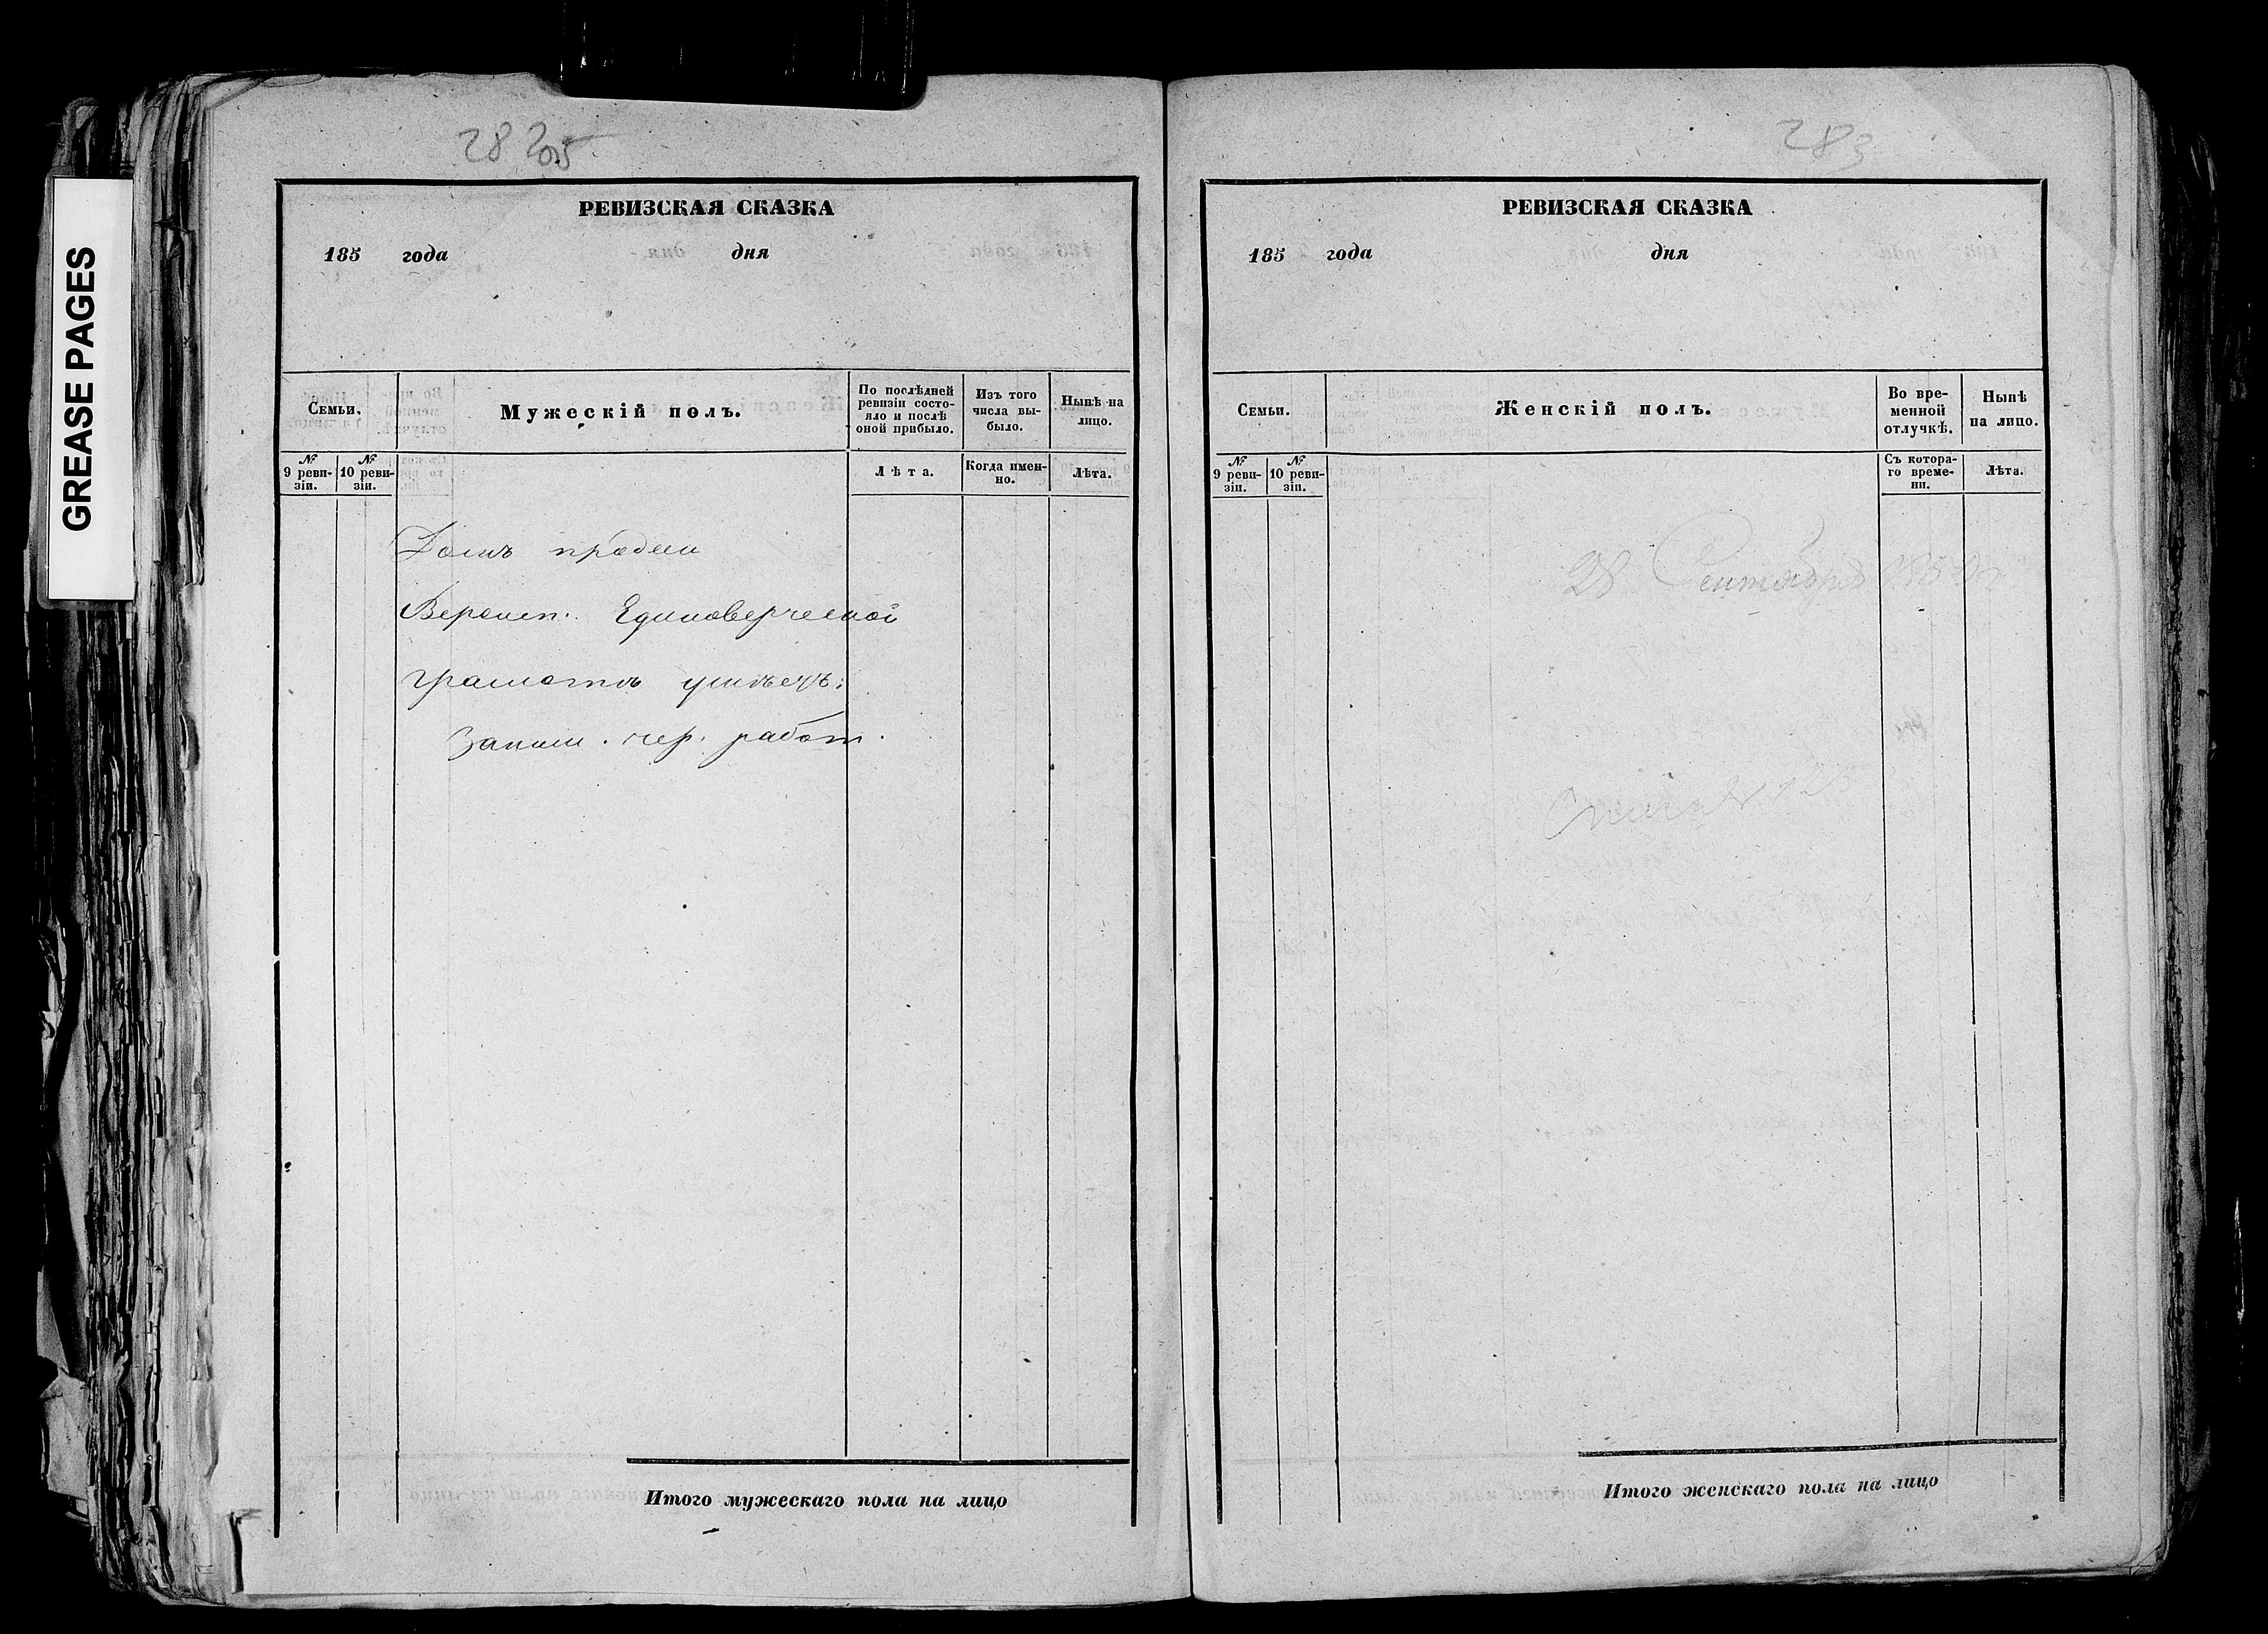 GREASE PAGES
28
РЕВИЗСКАЯ СКАЗКА
185 года дня
Семьи.
Мужескій полъ.
По послѣдней ревизіи состо-
яло и послѣ
оной прибыло.
Изъ того
числа вы-
было.
Нынѣ на
лицо.
№ 9 реви-
зіи.
№ 10 реви-
зіи.
Лѣта.
Когда имен-
но.
Лѣта.
Домъ
Единоверческой
грамотѣ
чер. работ.
Итого мужескаго пола на лицо
283
РЕВИЗСКАЯ СКАЗКА
185 года дня
Семьи.
Женскій полъ.
Во вре-
менной
отлучкѣ.
Нынѣ
на лицо.
№ 9 реви-
зіи.
№ 10 реви-
зіи.
Съ котора-
го време-
ни.
Лѣта.
28 Сентября
Итого женскаго пола на лицо